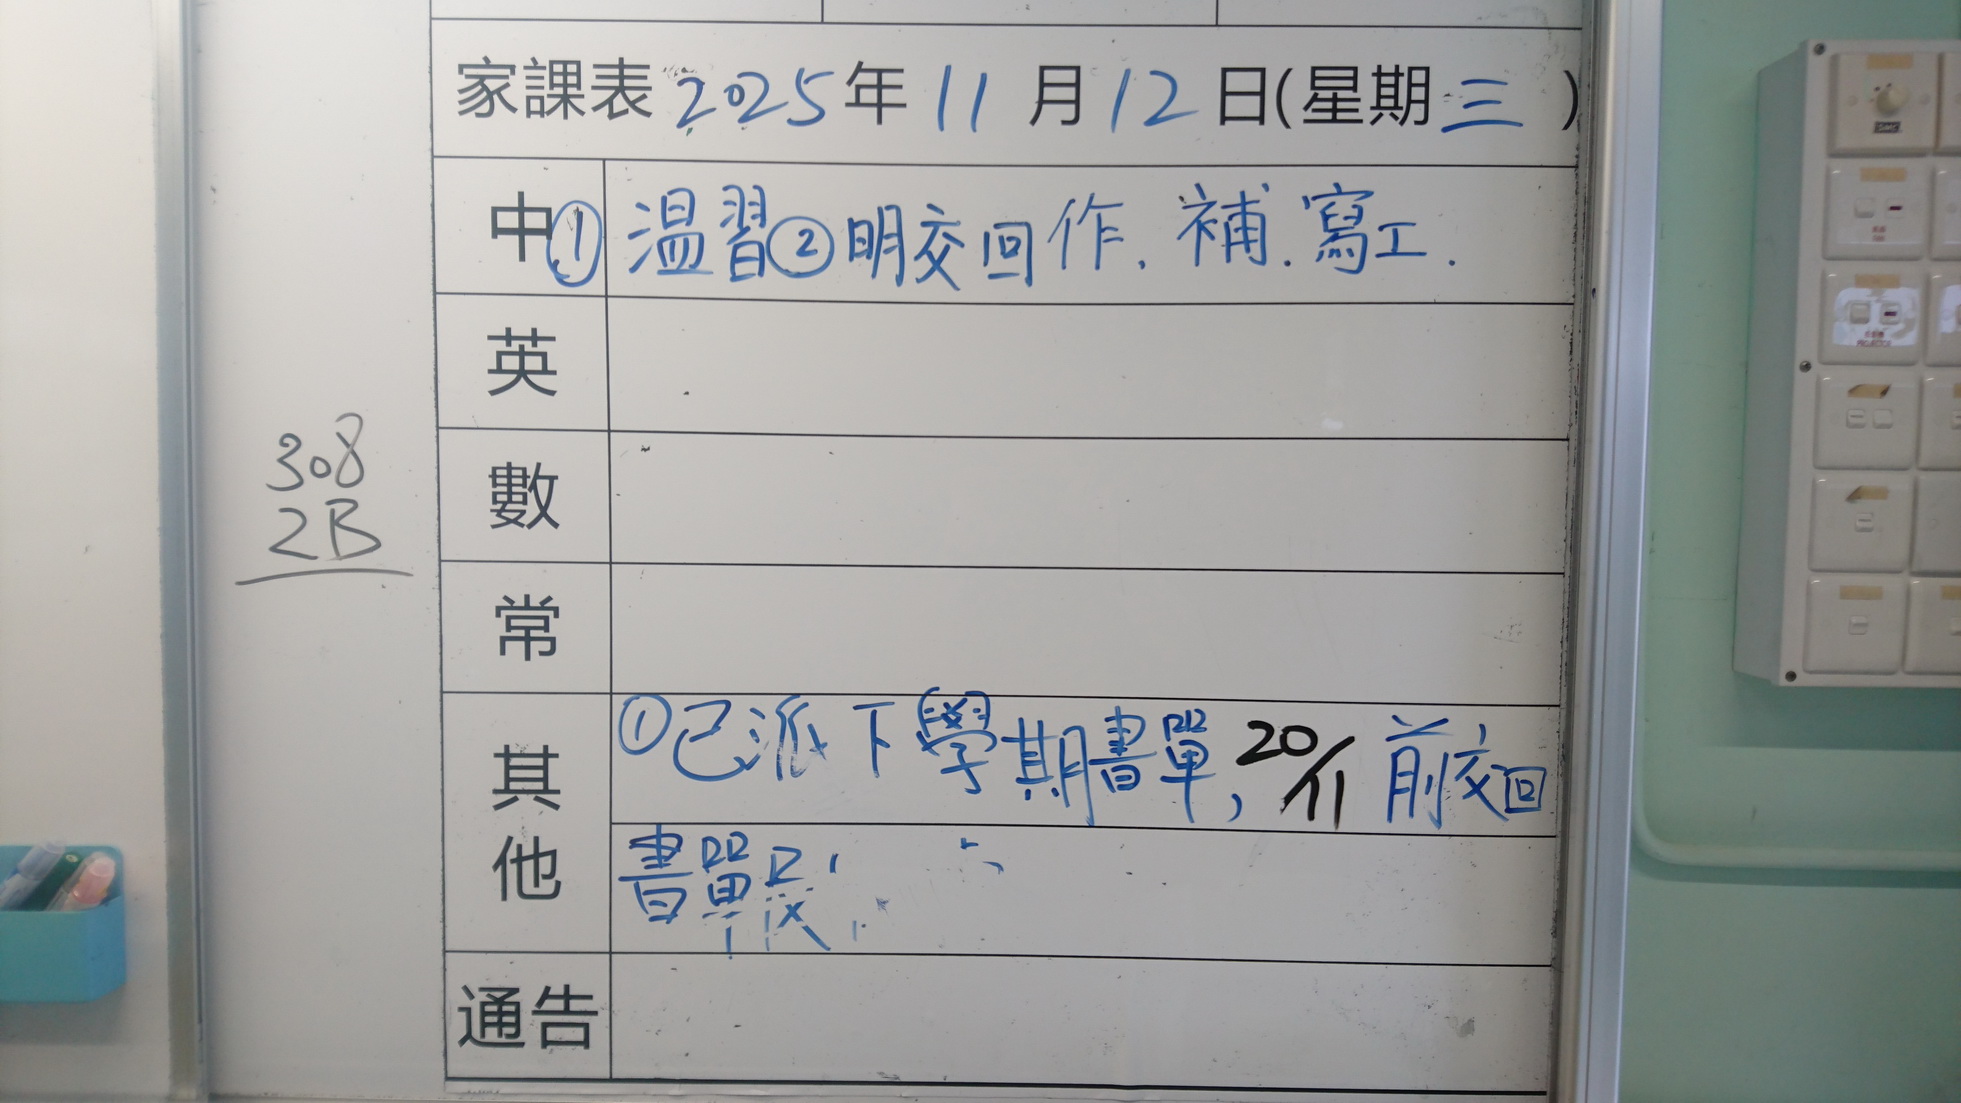 家課表 2025年 11 月 12 日(星期 三 )
中 ① 溫習 ② 明交回作. 補. 寫工.
英
308
數
2B
常
其他 ① 已派下學期書單, 20/11 前交回
書單
通告
PROJECTOR